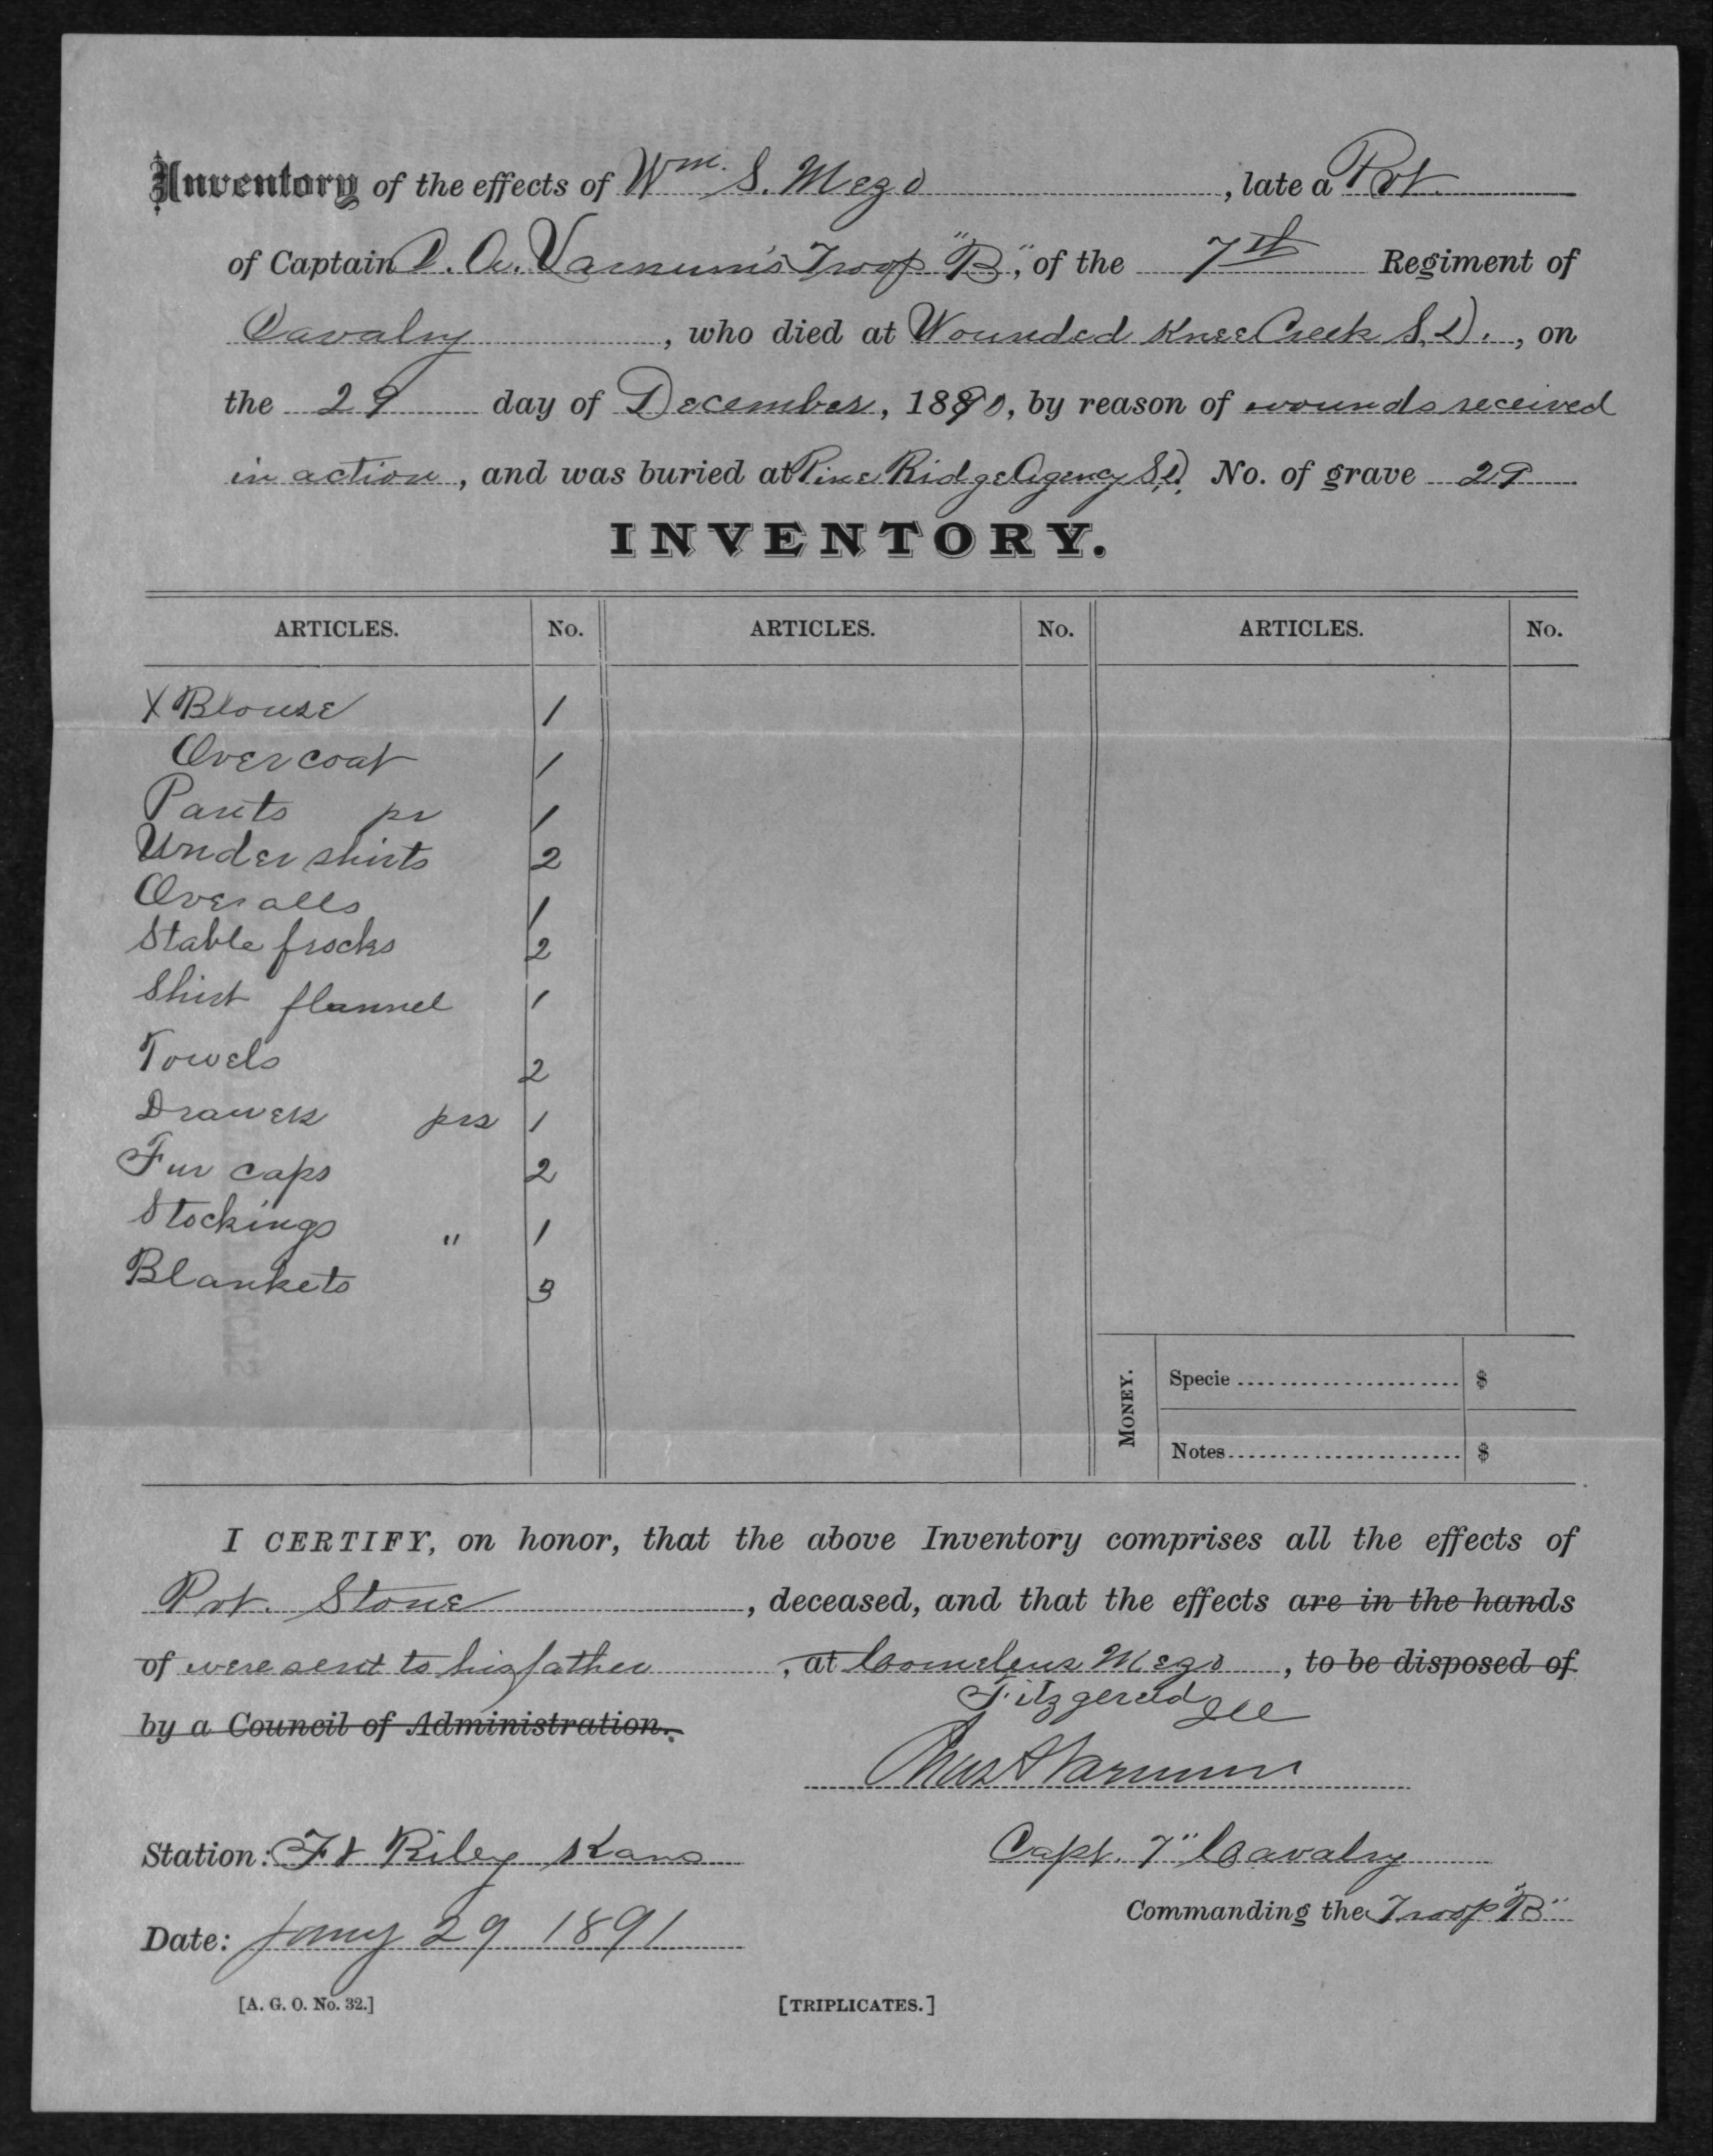 Inventory of the effects of Wm. S. Mezo, late a Pvt.
of Captain C. A. Varnum's Troop "B", of the 7th Regiment of
Cavalry, who died at Wounded Knee Creek S.D., on
the 29 day of December, 1890, by reason of wounds received
in action, and was buried at Pine Ridge Agency S.D. No. of grave 29
INVENTORY.
ARTICLES. No. ARTICLES. No. ARTICLES. No.
X Blouse 1
Overcoat 1
Pants pr 1
Undershirts 2
Overalls 1
Stable frocks 2
Shirt flannel 1
Towels 2
Drawers prs 1
Fur caps 2
Stockings " 1
Blankets 3
MONEY.
Specie $
Notes $
I CERTIFY, on honor, that the above Inventory comprises all the effects of
Pvt. Stone, deceased, and that the effects are in the hands
of were sent to his father, at Cornelius Mezo, to be disposed of
Fitzgerald Ill
by a Council of Administration.
Chas A Varnum
Station: Ft Riley Kans
Capt. 7" Cavalry
Commanding the Troop "B"
Date: Jany 29 1891
[A. G. O. No. 32.] [TRIPLICATES.]